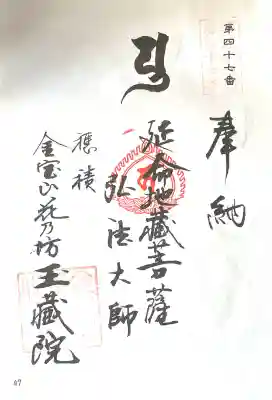 第四十七番
奉納
延命地蔵菩薩
弘法大師
穂積
金宝山花乃坊
王蔵院
47